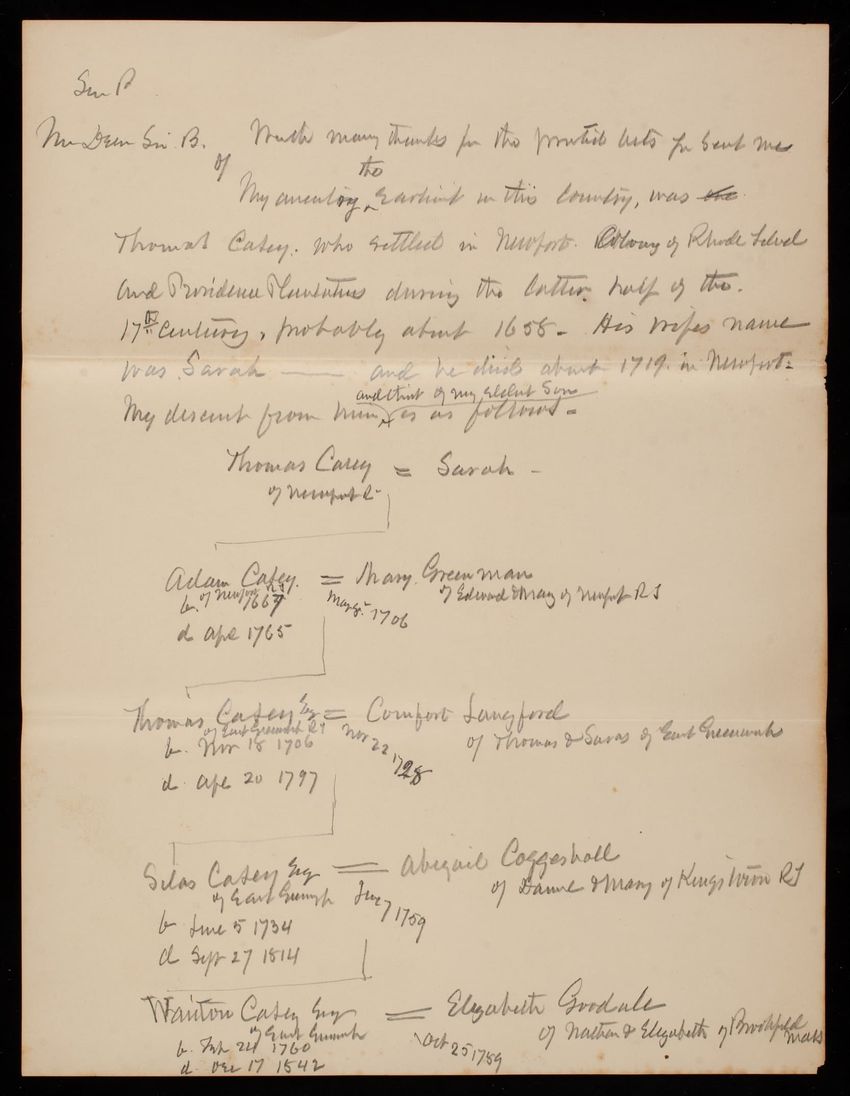 Sir B
My Dear Sir. B.
With many thanks for the printed lists you sent me
of
the
My ancestry, Earliest in this Country, was the
Thomas Casey. who settled in Newport. Colony of Rhode Island
and Providence Plantations during the latter half of the.
17th century, probably about 1658 - His wifes name
was Sarah —— and he died about 1719. in Newport -
and that of my eldest Son
My descent from him, is as follows =
Thomas Casey = Sarah -
of Newport R I
Adam Casey. = Mary. Greenman
of Newport R I of Edward & Mary of Newport R I
b. 1667 1706
d Apl 1765
Thomas Casey Esq = Comfort Langford
of East Greenwich R I Nov 22 1728 of Thomas & Saras of East Greenwich
b. Nov 18 1706
d. Apl 20 1797
Silas Casey Esq = Abigail Coggeshall
of East Greenwich 7 1759 of Daniel & Mary of Kingstown RI
b June 5 1734
d Sept 27 1814
Wanton Casey Esq = Elizabeth Goodale
of East Greenwich Oct 25 1789 of Nathan & Elizabeth of Brookfield Mass
b. Feb 24 1760
d. Dec 17 1842